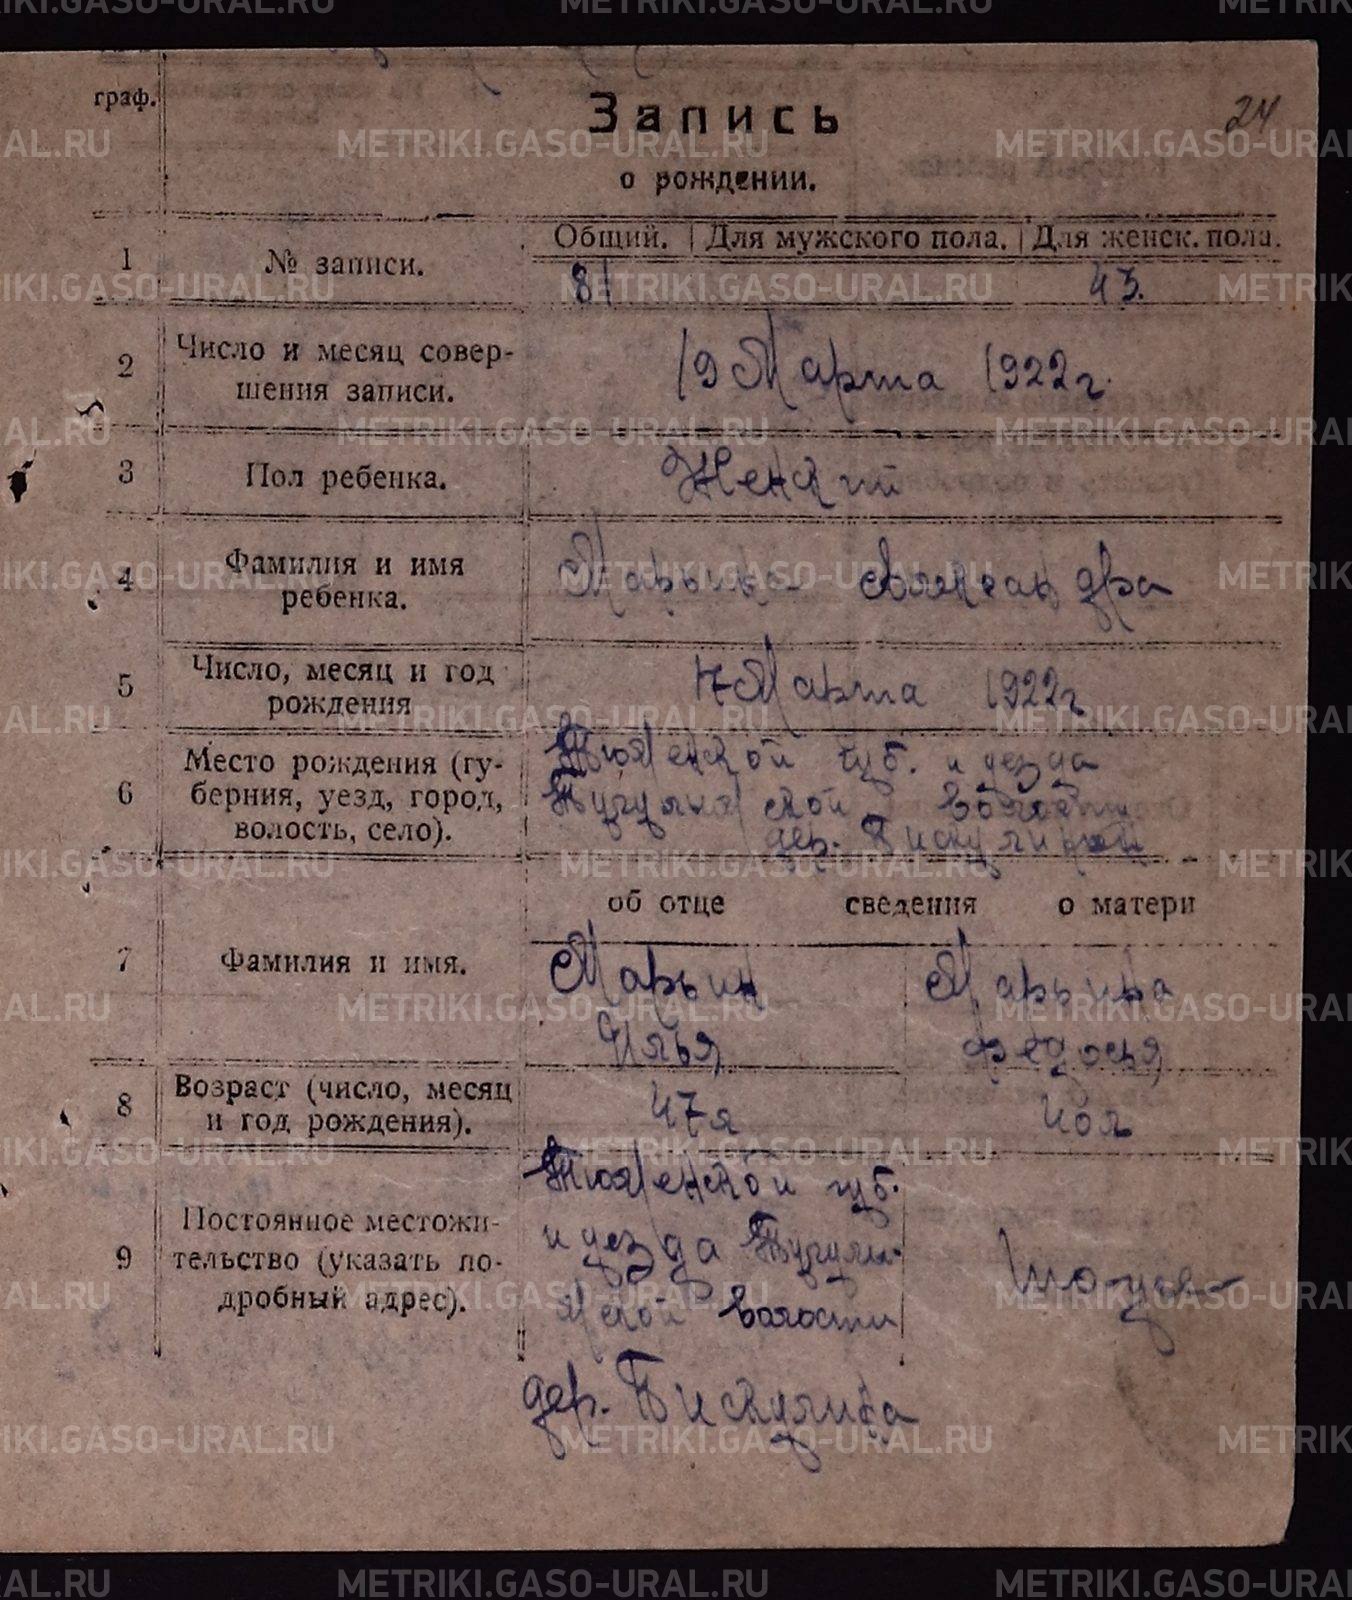 граф.
Запись
24
о рождении.
Общий. Для мужского пола. Для женск. пола.
1 № записи. 81 43.
2 Число и месяц совер-
шения записи. 19 Марта 1922 г.
3 Пол ребенка. Женский
4 Фамилия и имя
ребенка. Марьина Александра
5 Число, месяц и год
рождения 7 Марта 1922 г.
6 Место рождения (гу-
берния, уезд, город,
волость, село).
Тюменской губ. и уезда
Тугулымской волости
дер. Пискулиной
об отце сведения о матери
7 Фамилия и имя. Марьин Марьина
Илья Федосья
8 Возраст (число, месяц
и год рождения). 47 л
9 Постоянное местожи-
тельство (указать по-
дробный адрес).
Тюменской губ.
и уезда Тугулым-
ской волости
дер. Пискулина
METRIKI.GASO-URAL.RU